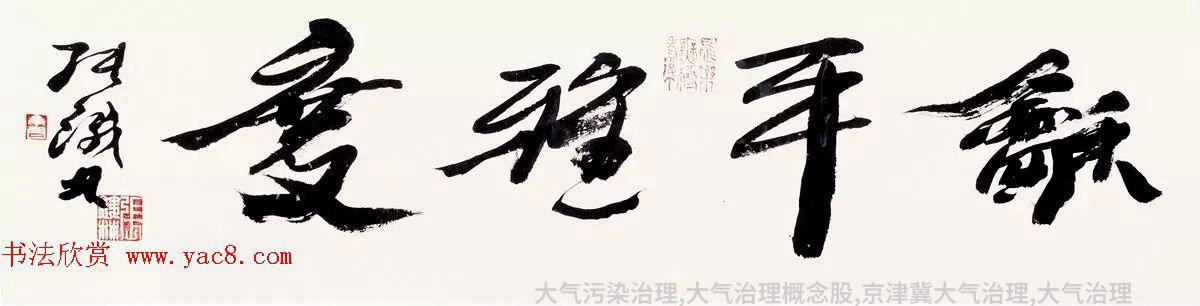 龢平雅度
張鐵林
书法欣赏 www.yac8.com
大气污染治理,大气治理概念股,京津冀大气治理,大气治理